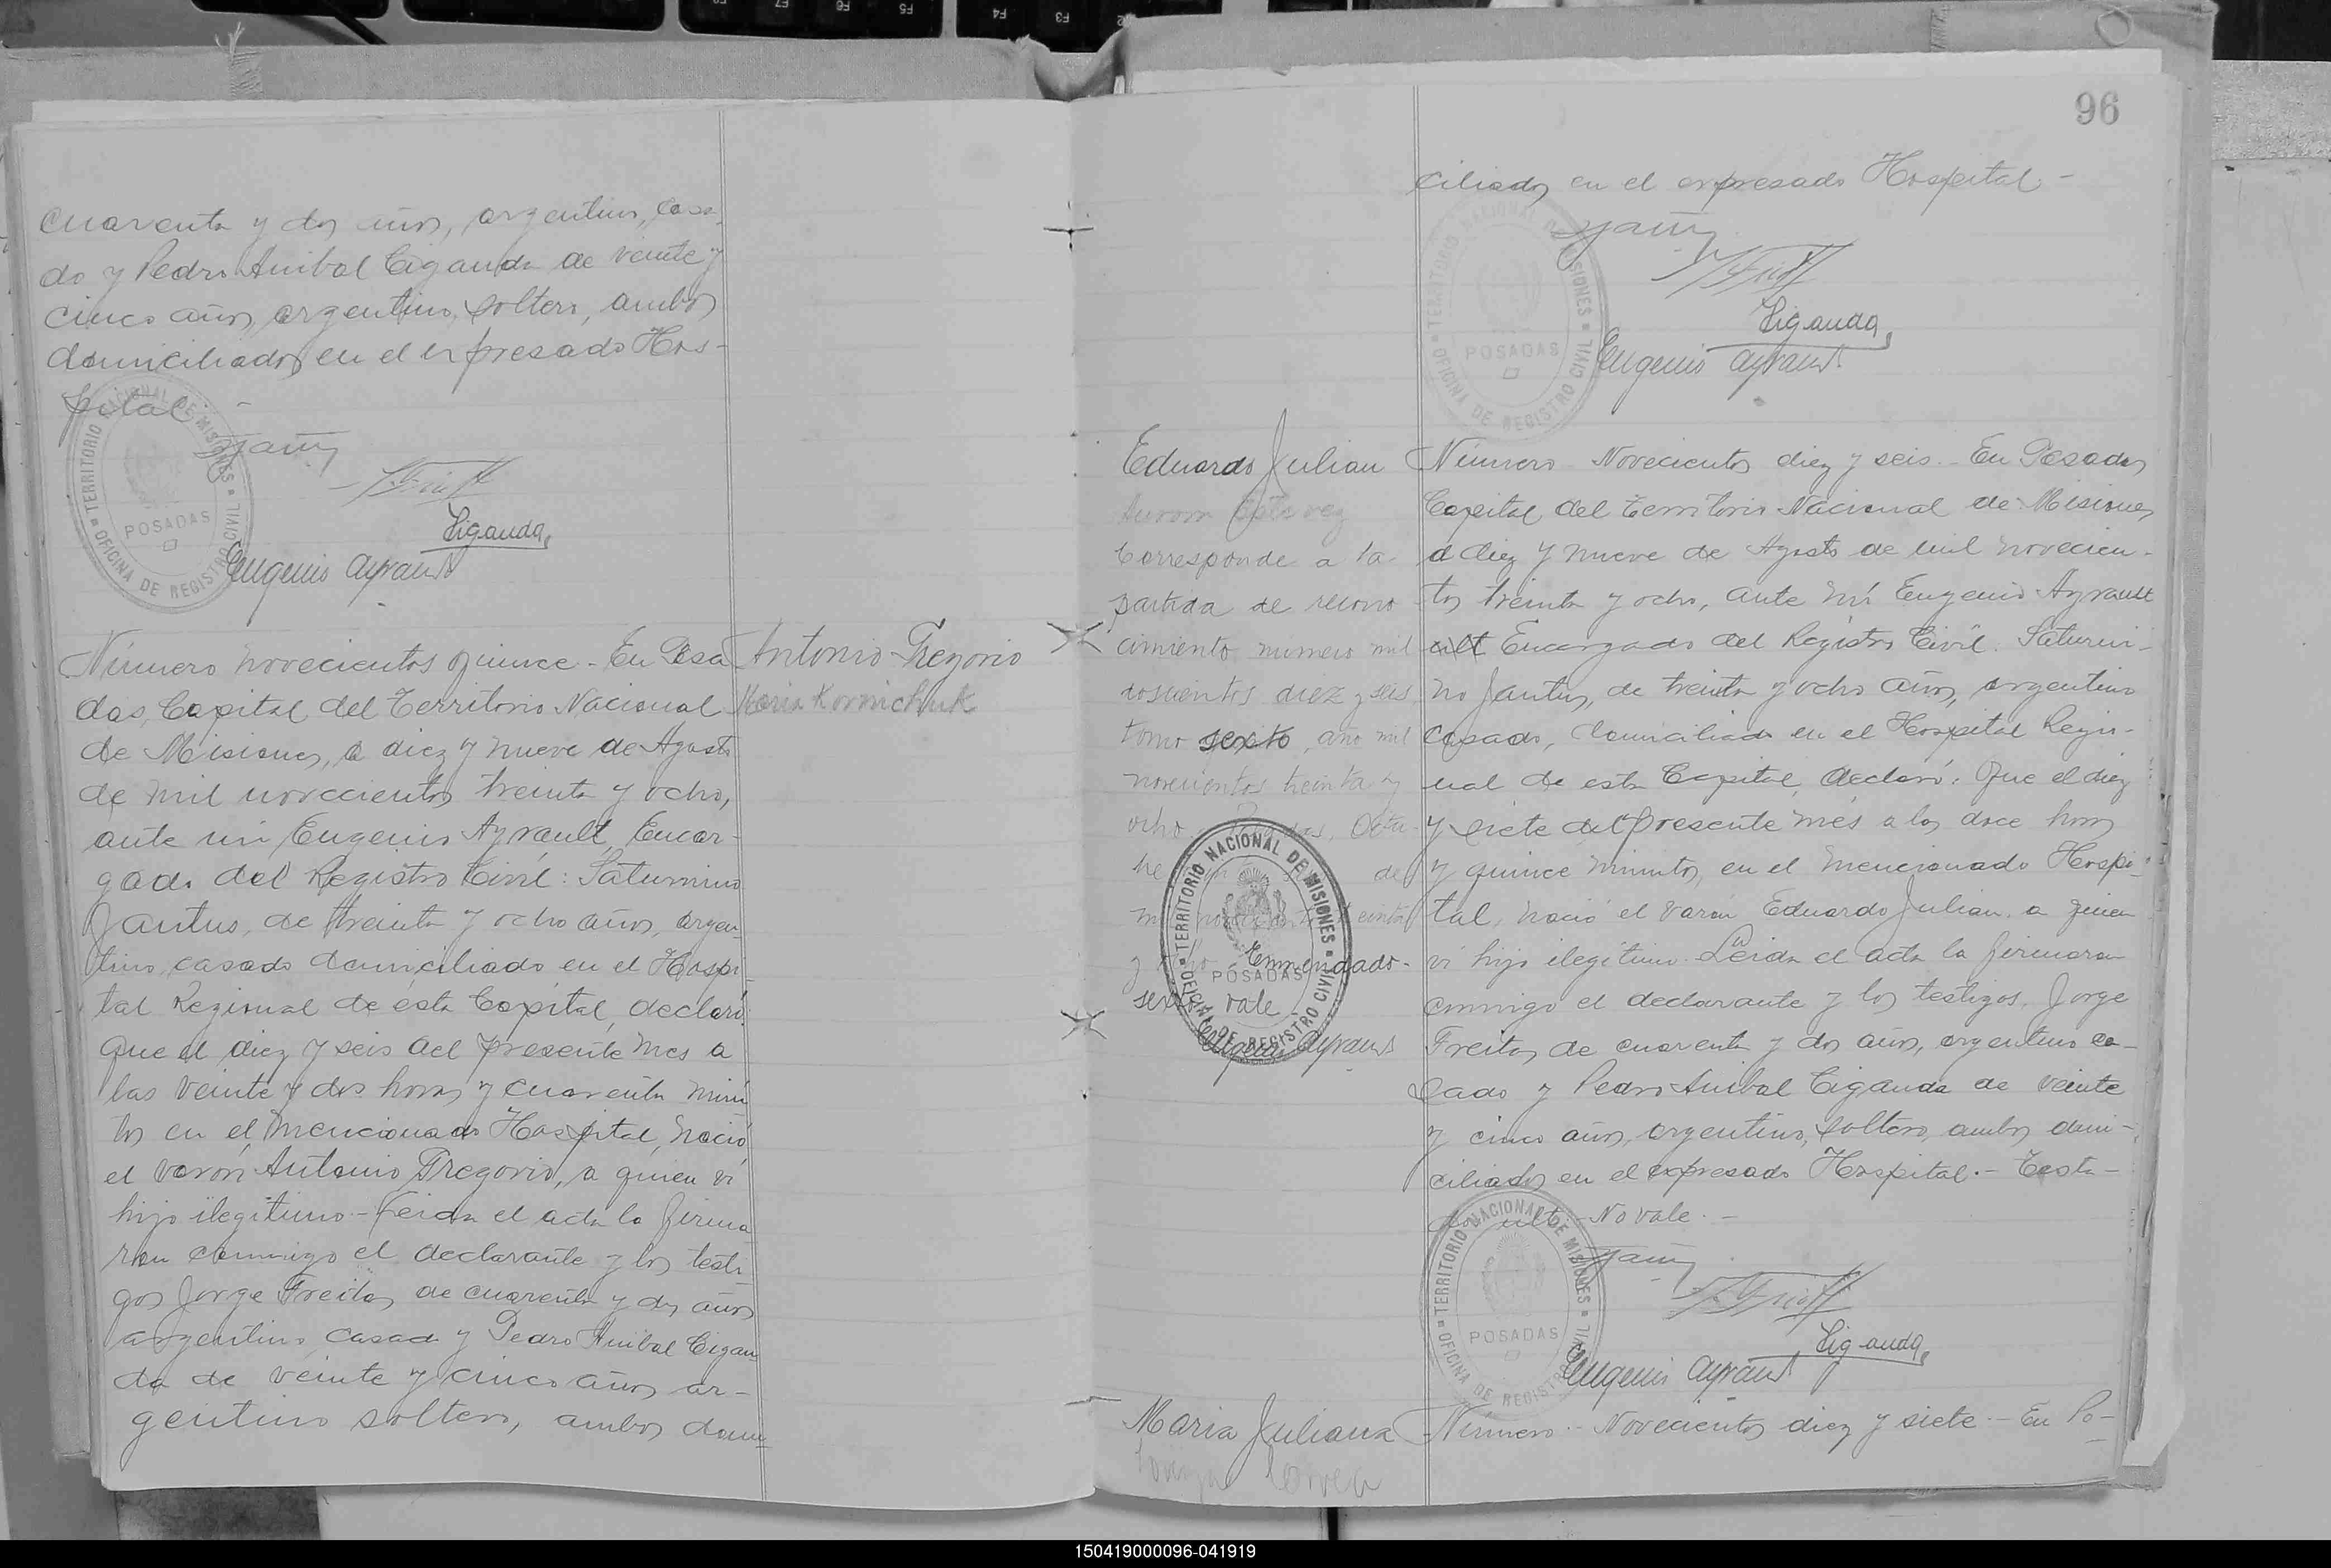 cuarenta y dos años, argentino, casa-
do y Pedro Anibal Ciganda de veinte y
cinco años, argentino, soltero, ambos
domiciliados en el expresado Hos-
pital. -
Ciganda
Eugenio Ayrault
TERRITORIO NACIONAL DE MISIONES
POSADAS
OFICINA DE REGISTRO CIVIL
Número novecientos quince - En Posa
das, Capital del Territorio Nacional
de Misiones, a diez y nueve de Agosto
de mil novecientos treinta y ocho,
ante mi Eugenio Ayrault, Encar-
gado del Registro Civil: Saturnino
Jantus, de treinta y ocho años, argen-
tino, casado domiciliado en el Hospi-
tal Regional de ésta Capital, declaró:
Que el diez y seis del presente mes a
las veinte y dos horas y cuarenta minu
tos en el mencionado Hospital, nació
el varón Antonio Gregorio, a quien vi
hijo ilegitimo - Leida el acta la firma
ron conmigo el declarante y los testi-
gos Jorge Freitas, de cuarenta y dos años
argentino, casado y Pedro Anibal Cigan
da de veinte y cinco años, ar-
gentino soltero, ambos domi-
Antonio Gregorio
Maria Kornichuk
96
ciliados en el expresado Hospital -
Ciganda
Eugenio Ayrault
TERRITORIO NACIONAL DE MISIONES
POSADAS
OFICINA DE REGISTRO CIVIL
Eduardo Julian
Corresponde a la
partida de recono
cimiento número mil
doscientos diez y seis
tomo sexto, año mil
novecientos treinta y
ocho
Enmendado -
sexto vale
Eugenio Ayrault
TERRITORIO NACIONAL DE MISIONES
POSADAS
OFICINA DE REGISTRO CIVIL
Número Novecientos diez y seis. - En Posadas
Capital del Territorio Nacional de Misiones,
a diez y nueve de Agosto de mil novecien-
tos treinta y ocho, ante mí Eugenio Ayrault
ult Encargado del Registro Civil. Saturni-
no Jantus, de treinta y ocho años, argentino
casado, domiciliado en el Hospital Regio-
nal de esta Capital, declaró: Que el diez
y siete del presente mes a las doce horas
y quince minutos, en el mencionado Hospi-
tal, nació el varon Eduardo Julian, a quien
vi hijo ilegitimo. Leida el acta la firmaron
conmigo el declarante y los testigos, Jorge
Freitas, de cuarenta y dos años, argentino ca-
sado y Pedro Anibal Ciganda de veinte
y cinco años, argentino, soltero, ambos domi-
ciliados en el expresado Hospital. - Testa-
do ult - No vale. -
Ciganda
Eugenio Ayrault
TERRITORIO NACIONAL DE MISIONES
POSADAS
OFICINA DE REGISTRO CIVIL
Maria Juliana
Número - Novecientos diez y siete - En Po-
150419000096-041919